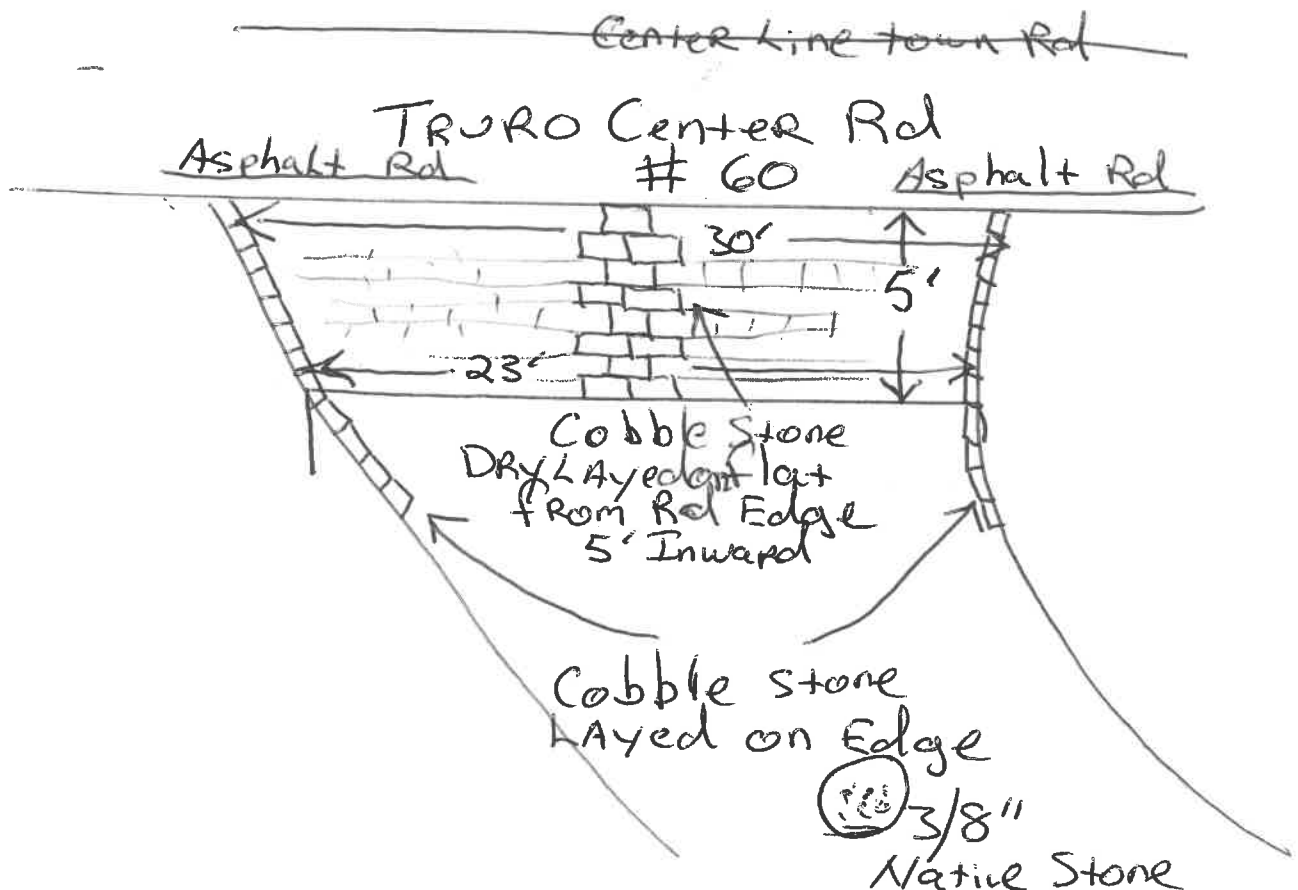 Center Line town Rd
TRURO Center Rd
# 60
Asphalt Rd
Asphalt Rd
30'
5'
23'
Cobble Stone
DRY LAyed on flat
fRom Rd Edge
5' Inward
Cobble stone
LAyed on Edge
3/8"
Native Stone